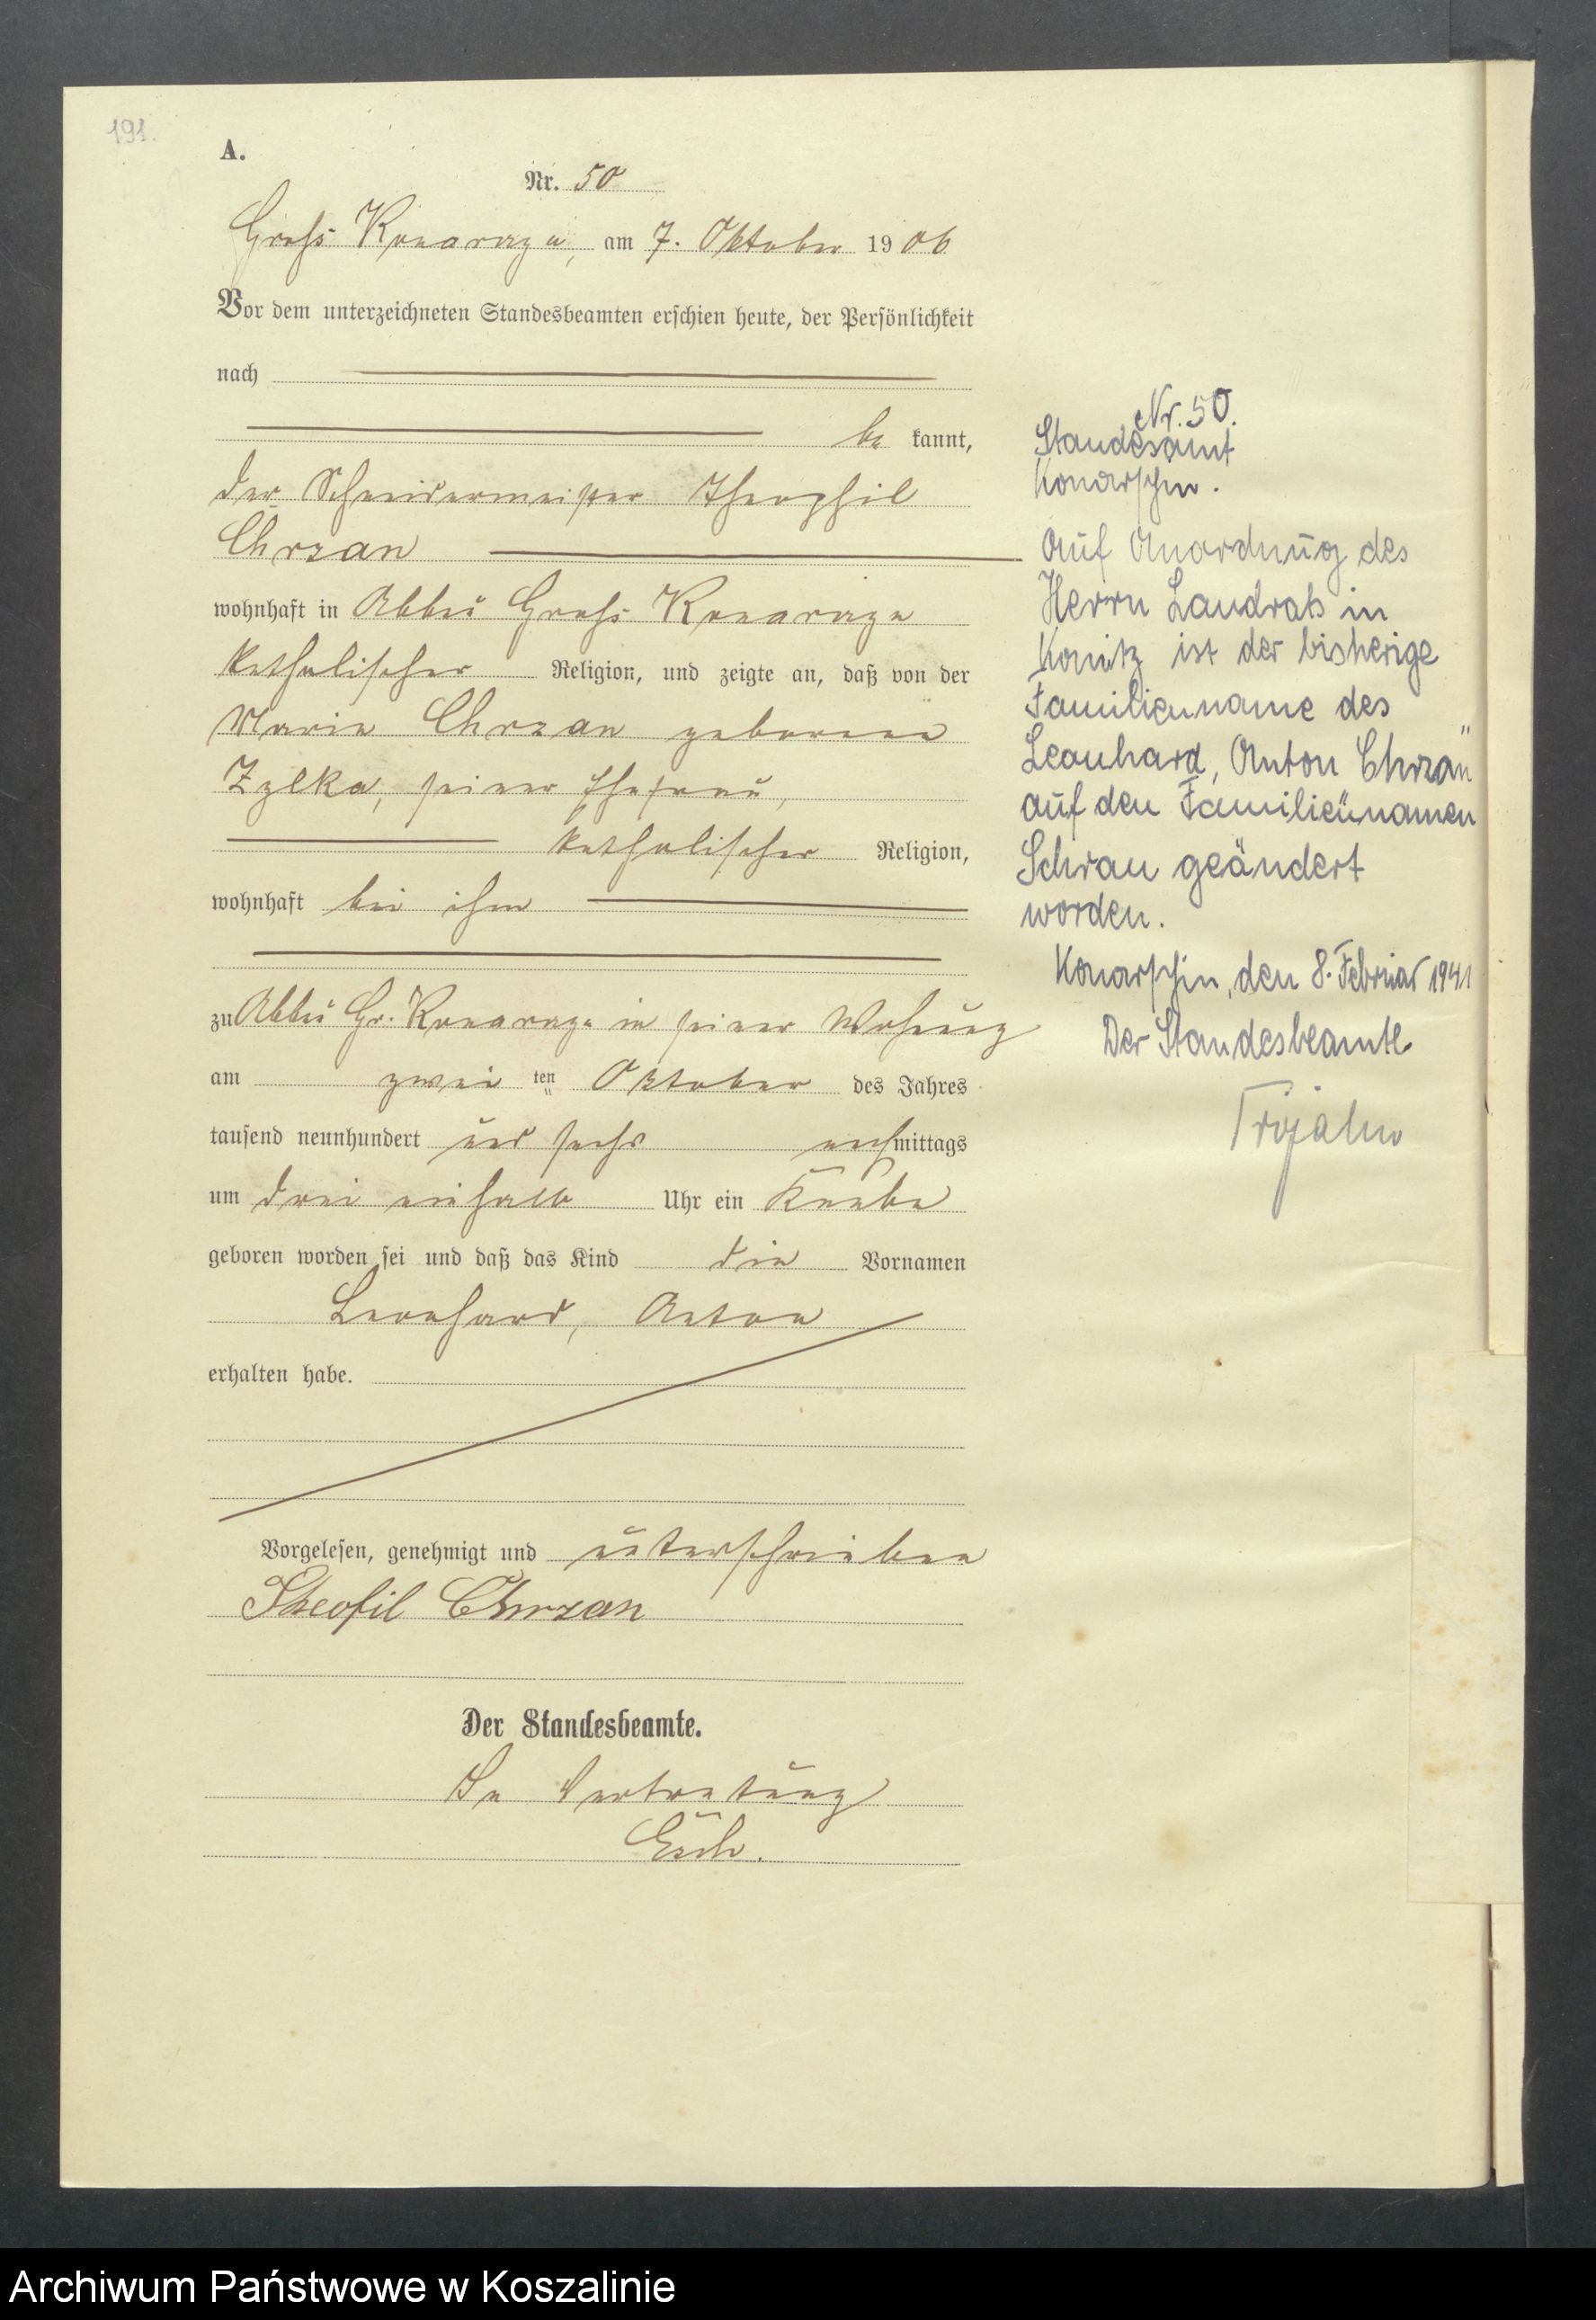 191.
A.
Nr. 50
Gross Konarczyn, am 7. Oktober 1906
Vor dem unterzeichneten Standesbeamten erschien heute, der Persönlichkeit
nach
be kannt,
der Schneidermeister Theophil
Chrzan
wohnhaft in Abbau Gross Konarczyn
katholischer Religion, und zeigte an, daß von der
Maria Chrzan geborene
Zylka, seiner Ehefrau,
katholischer Religion,
wohnhaft bei ihm
zu Abbau Gr. Konarczyn in seiner Wohnung
am zwei ten Oktober des Jahres
tausend neunhundert und sechs nachmittags
um drei einhalb Uhr ein Knabe
geboren worden sei und daß das Kind die Vornamen
Leonhard, Anton
erhalten habe.
Vorgelesen, genehmigt und unterschrieben
Theofil Chrzan
Der Standesbeamte.
In Vertretung
Nr. 50.
Standesamt
Konarschin.
Auf Anordnung des
Herrn Landrats in
Konitz ist der bisherige
Familienname des
Leonhard, Anton "Chrzan"
auf den Familiennamen
Schran geändert
worden.
Konarschin, den 8. Februar 1941
Der Standesbeamte
Archiwum Państwowe w Koszalinie